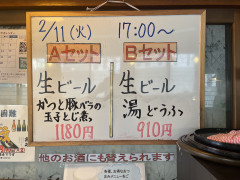 2/11(火) 17:00〜
Aセット
生ビール
かつと豚バラの
玉子とじ煮
1180円
Bセット
生ビール
湯どうふ
910円
他のお酒にも替えられます